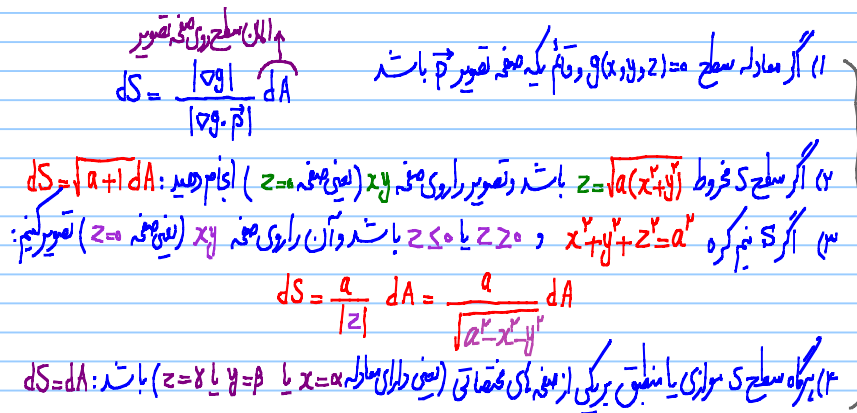 المان سطح روی صفحه تصویر
۱) اگر معادله سطح g(x,y,z)=0 و قائم یکه صفحه تصویر p⃗ باشد
dS = |∇g| / |∇g·p⃗| dA
۲) اگر سطح S مخروط z=√(a(x²+y²)) باشد و تصویر را روی صفحه xy (یعنی صفحه z=0) انجام دهید: dS=√(a+1) dA
۳) اگر S نیم کره x²+y²+z²=a² و z≥0 یا z≤0 باشد و آن را روی صفحه xy (یعنی صفحه z=0) تصویر کنیم:
dS = a/|z| dA = a/√(a²-x²-y²) dA
۴) هرگاه سطح S موازی یا منطبق بر یکی از صفحه های مختصاتی (یعنی دارای معادله x=α یا y=β یا z=γ) باشد: dS=dA